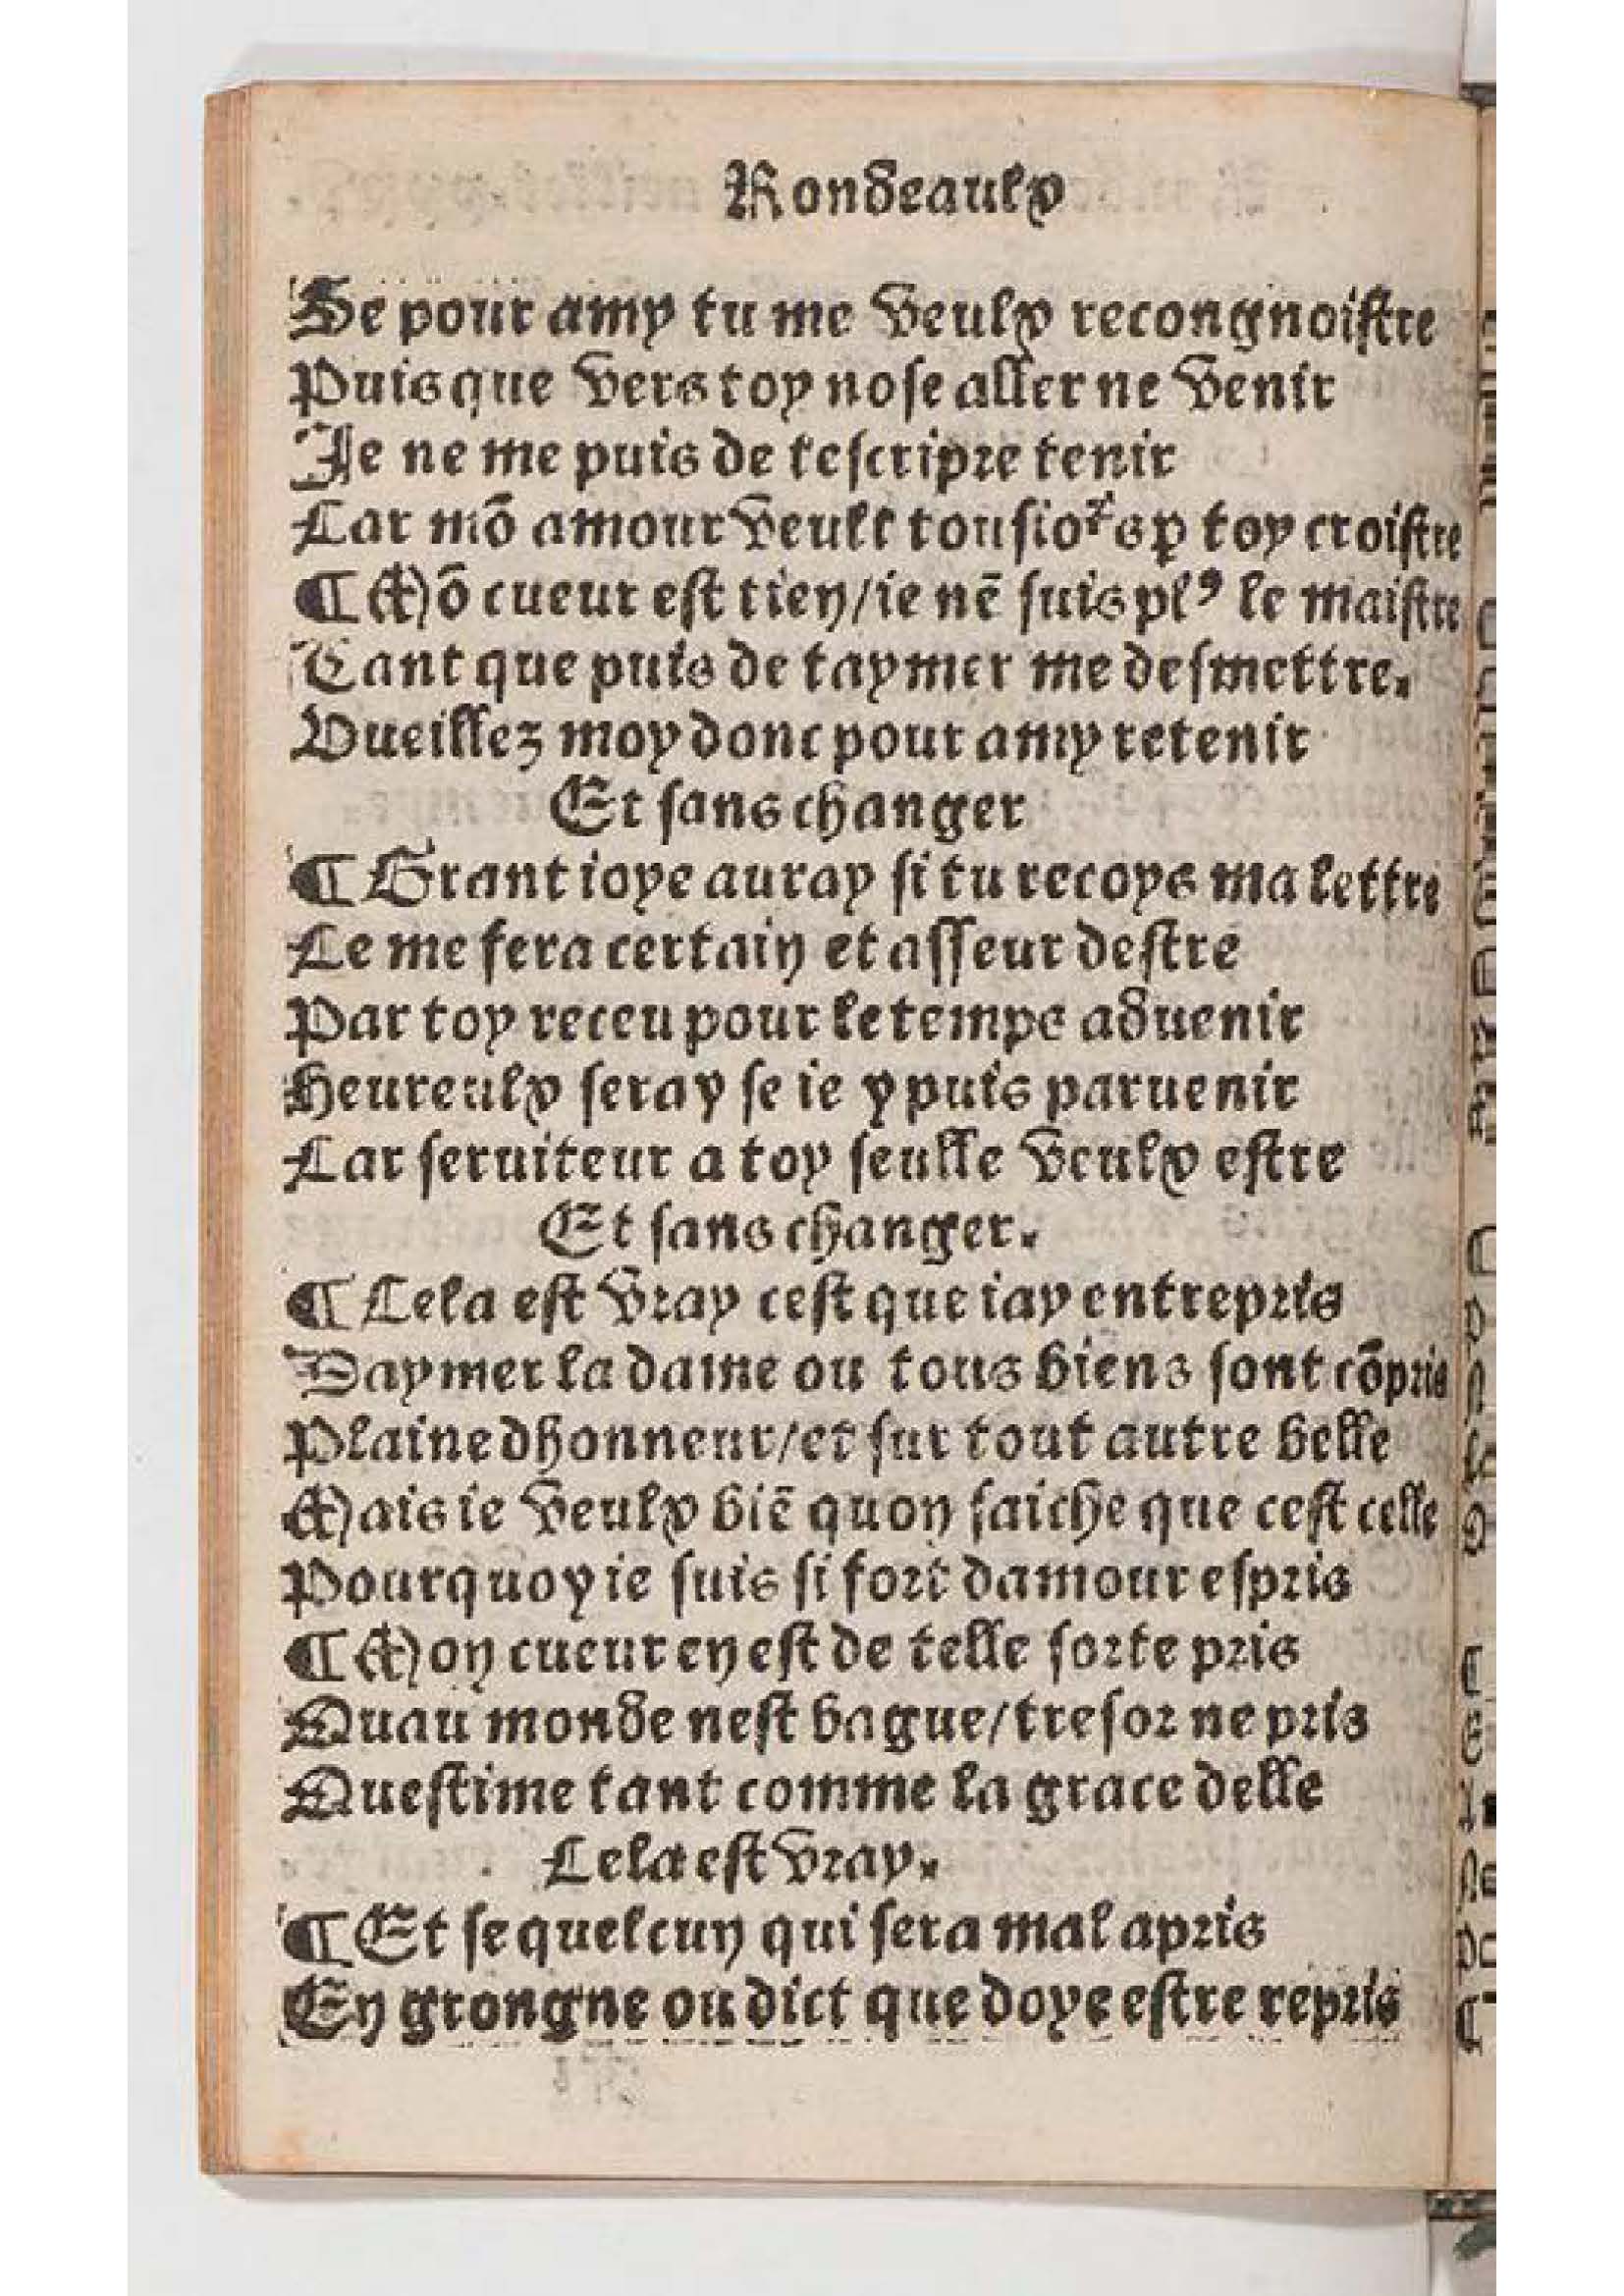 Rondeaulx
Se pour amy tu me veulx recongnoiſtre
Puis que vers toy noſe aller ne venir
Je ne me puis de teſcripre tenir
Car mõ amour veult touſioꝛˢ ꝑ toy croiſtre
¶ Mõ cueur eſt tien/ie nẽ ſuis plꝰ le maiſtre
Tant que puis de taymer me deſmettre.
Vueillez moy donc pour amy retenir
Et ſans changer
¶ Grant ioye auray ſi tu recoys ma lettre
Ce me fera certain et aſſeur deſtre
Par toy receu pour le temps aduenir
Heureulx ſeray ſe ie y puis paruenir
Car ſeruiteur a toy ſeulle veulx eſtre
Et ſans changer.
¶ Cela eſt vray ceſt que iay entrepris
Daymer la dame ou tous biens ſont cõpris
Plaine dhonneur/et ſur tout autre belle
Mais ie veulx biẽ quon ſaiche que ceſt celle
Pourquoy ie ſuis ſi fort damour eſpris
¶ Mon cueur en eſt de telle ſorte pris
Quau monde neſt bague/treſor ne pris
Queſtime tant comme la grace delle
Cela eſt vray.
¶ Et ſe quelcun qui ſera mal apris
En grongne ou dict que doye eſtre repris